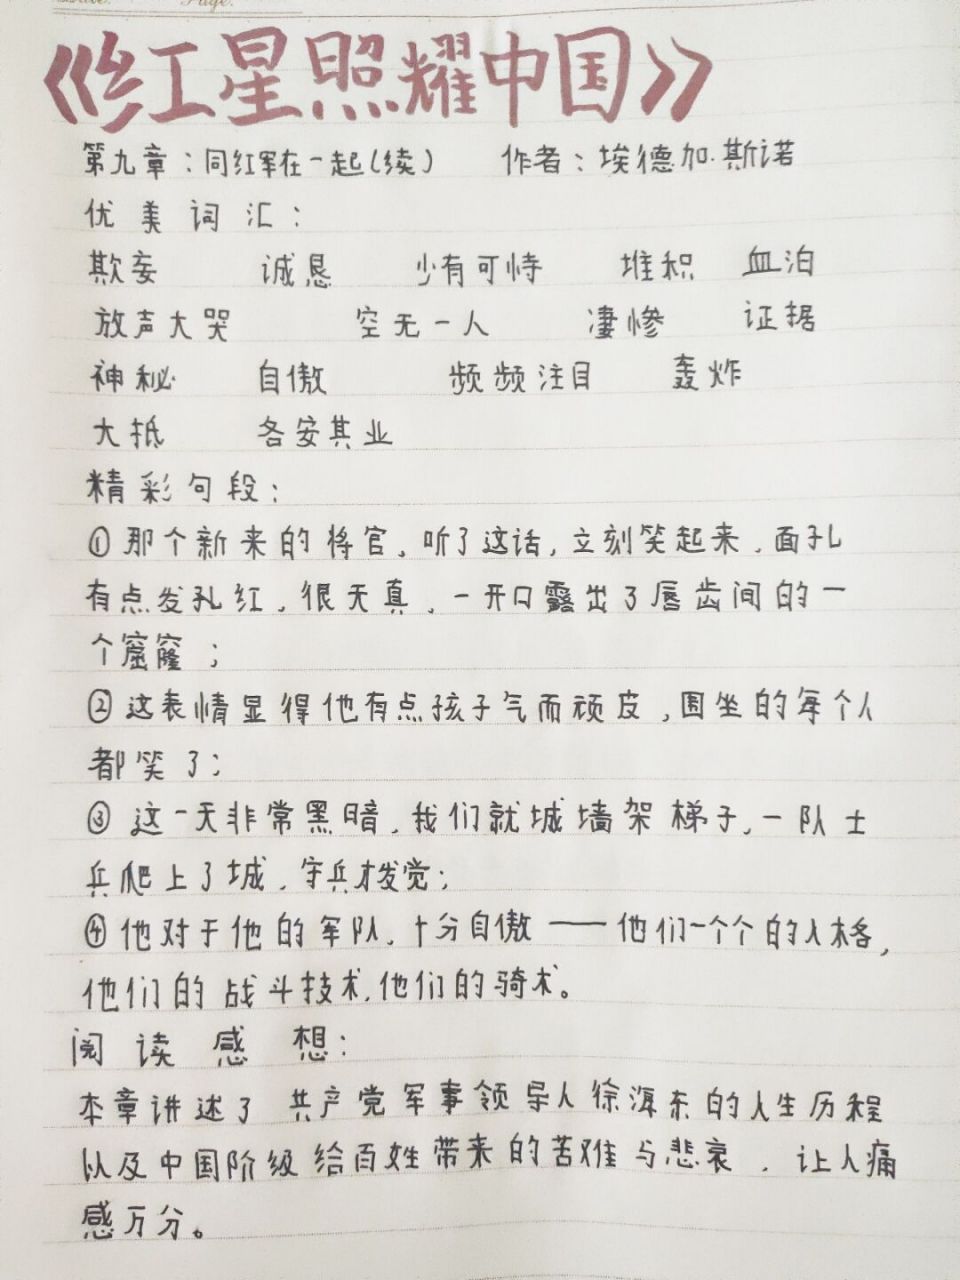 Page.
《红星照耀中国》
第九章：同红军在一起(续) 作者：埃德加·斯诺
优美词汇：
欺妄 诚恳 少有可恃 堆积 血泊
放声大哭 空无一人 凄惨 证据
神秘 自傲 频频注目 轰炸
大抵 各安其业
精彩句段：
①那个新来的将官，听了这话，立刻笑起来，面孔
有点发孔红，很天真，一开口露出了唇齿间的一
个窟窿；
②这表情显得他有点孩子气而顽皮，围坐的每个人
都笑了；
③这一天非常黑暗，我们就城墙架梯子，一队士
兵爬上了城，守兵才发觉；
④他对于他的军队，十分自傲——他们一个个的人格，
他们的战斗技术，他们的骑术。
阅读感想：
本章讲述了共产党军事领导人徐海东的人生历程
以及中国阶级给百姓带来的苦难与悲哀，让人痛
感万分。